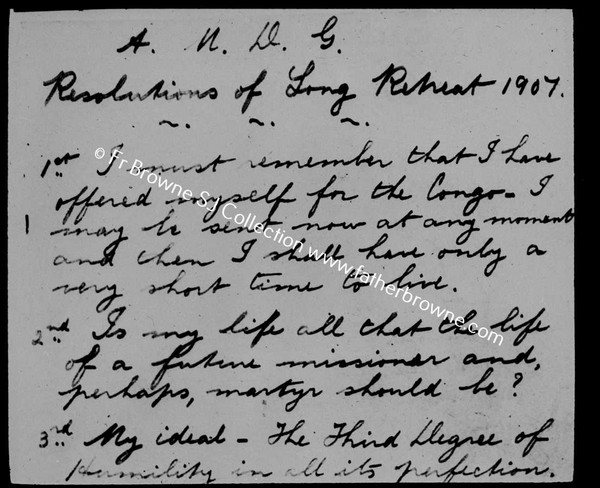 A. M. D. G.
Resolutions of Long Retreat 1907.
~. ~. ~.
1st I must remember that I have
offered myself for the Congo - I
may be sent now at any moment
and then I shall have only a
very short time to live.
2nd Is my life all that the life
of a future missioner and,
perhaps, martyr should be?
3rd My ideal - The Third Degree of
Humility in all its perfection.
© Fr Browne SJ Collection www.fatherbrowne.com